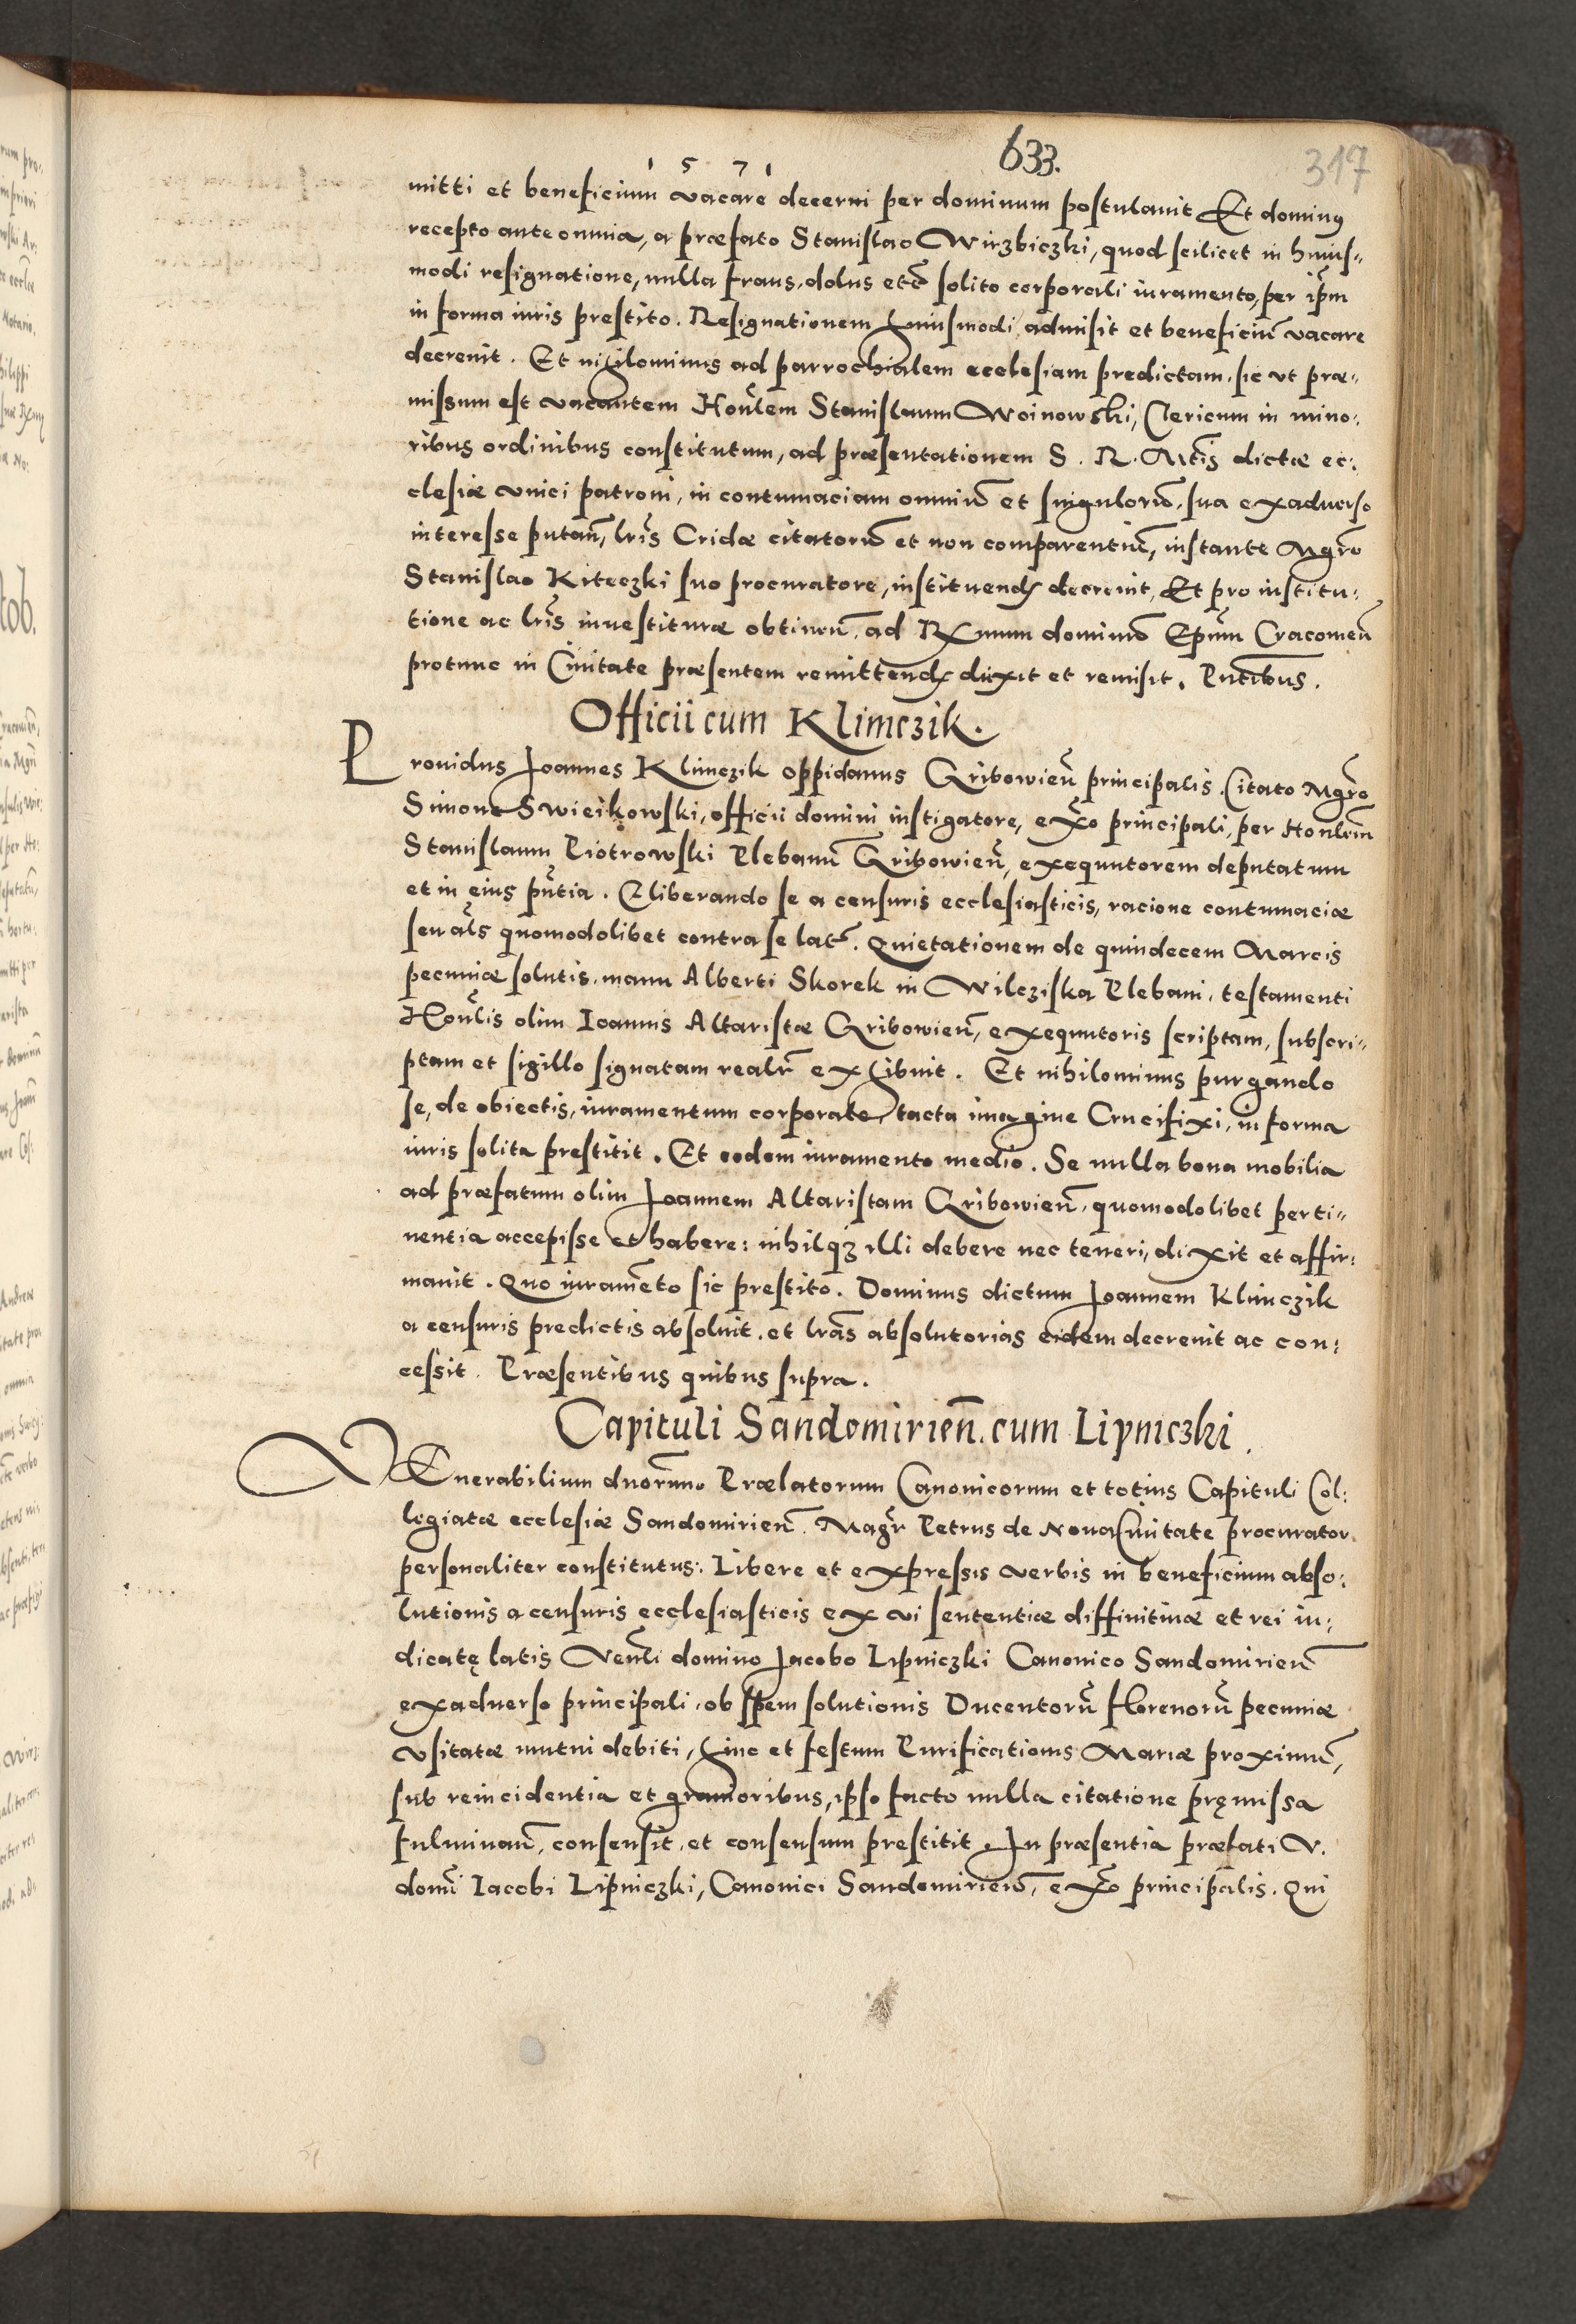 1 5 7 1
633.
317
mitti et beneficium vacare decerni per dominum postulauit Et dominus
recepto ante omnia, a præfato Stanislao Wirzbiczki, quod scilicet in huius-
modi resignatione, nulla fraus, dolus etc̃ solito corporali iuramento, per ip̃m
in forma iuris prestito. Resignationem huiusmodi admisit et beneficiũ vacare
decreuit. Et nihilominus ad parrochialem ecclesiam predictam, sic vt præ-
missum est vacantem Honl̃em Stanislaum Woinowski, Clericum in mino:
ribus ordinibus constitutum, ad præsentationem S. R. Mtis̃ dictæ ec:
clesiæ vnici patroni, in contumaciam omniũ et singulorũ, sua exaduerso
interesse putañ, lr̃is Cridæ citatorũ et non comparentiũ, instante Mgr̃o
Stanislao Kiteczki suo procuratore, instituendũ decreuit, Et pro institu:
tione ac lr̃is inuestituræ obtineñ, ad Rx̃mum dominũ Ep̃um Cracouieñ
protunc in Ciuitate præsentem remittendũ duxit et remisit. Pñtibus.
Officii cum Klimczik.
Prouidus Joannes Klimczik oppidanus Gribowieñ principalis. Citato Mgr̃o
Simone Swieikowski, officii domini instigatore, exño principali, per Honlem̃
Stanislaum Piotrowski Plebanũ Gribowieñ, exequutorem deputatum
et in eius pñtia. Eliberando se a censuris ecclesiasticis, racione contumaciæ
seu al̃s quomodolibet contra se lat̃. Quietationem de quindecem Marcis
pecuniæ solutis, manu Alberti Skorek in Wilcziska Plebani, testamenti
Honl̃is olim Ioannis Altaristæ Gribowieñ, exequutoris scriptam, subscri-
ptam et sigillo signatam realr̃ exhibuit. Et nihilominus purgando
se, de obiectis, iuramentum corporale, tacta imagine Crucifixi, in forma
iuris solita prestitit. Et eodem iuramento medio. Se nulla bona mobilia
ad præfatum olim Joannem Altaristam Gribowieñ, quomodolibet perti-
nentia accepisse et habere: nihilqz illi debere nec teneri, dixit et affir:
mauit. Quo iuramẽto sic prestito. Dominus dictum Joannem Klimczik
a censuris predictis absoluit, et lr̃as absolutorias eidem decreuit ac con:
cessit. Præsentibus quibus supra.
Capituli Sandomirieñ. cum Lipniczki.
VEnerabilium dñorum Prælatorum Canonicorum et totius Capituli Col:
legiatæ ecclesiæ Sandomirieñ. Magr̃ Petrus de Noua Ciuitate procurator
personaliter constitutus: Libere et expressis verbis in beneficium abso:
lutionis a censuris ecclesiasticis ex vi sententiæ diffinitiuæ et rei iu:
dicatę latis Venl̃i domino Jacobo Lipniczki Canonico Sandomirieñ
exaduerso principali, ob spem solutionis Ducentorũ florenorũ pecuniæ
vsitatæ mutui debiti, hinc et festum Purificationis Mariæ proximũ,
sub reincidentia et grauioribus, ipso facto nulla citatione pręmissa
fulminañ, consensit, et consensum prestitit. In præsentia præfati V.
domĩ Iacobi Lipniczki, Canonici Sandomirieñ, exño principalis. Qui